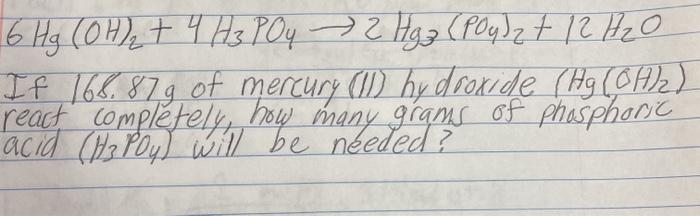 6 Hg (OH)₂ + 4 H₃PO₄ → 2 Hg₃(PO₄)₂ + 12 H₂O
If 168.87g of mercury (II) hydroxide (Hg(OH)₂)
react completely, how many grams of phosphoric
acid (H₃PO₄) will be needed?